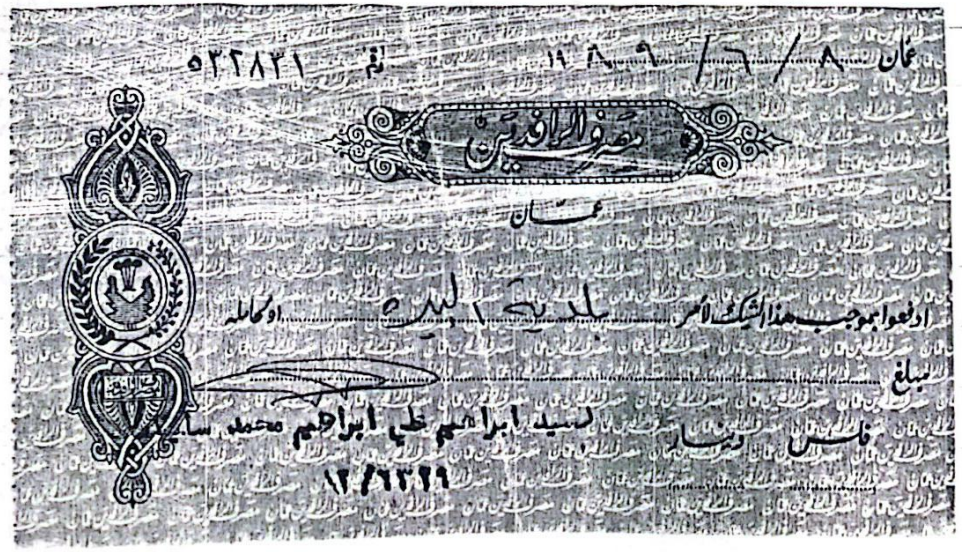 عمان ٨ / ٦ / ١٩٨٩ رقم ٥٣٢٨٣١
مصرف الرافدين
عمّان
ادفعوا بموجب هذا الشيك لأمر بلدية او لحامله
مبلغ
فلس دينار
ابراهيم علي ابراهيم محمد
١٢/٦٣٢٩